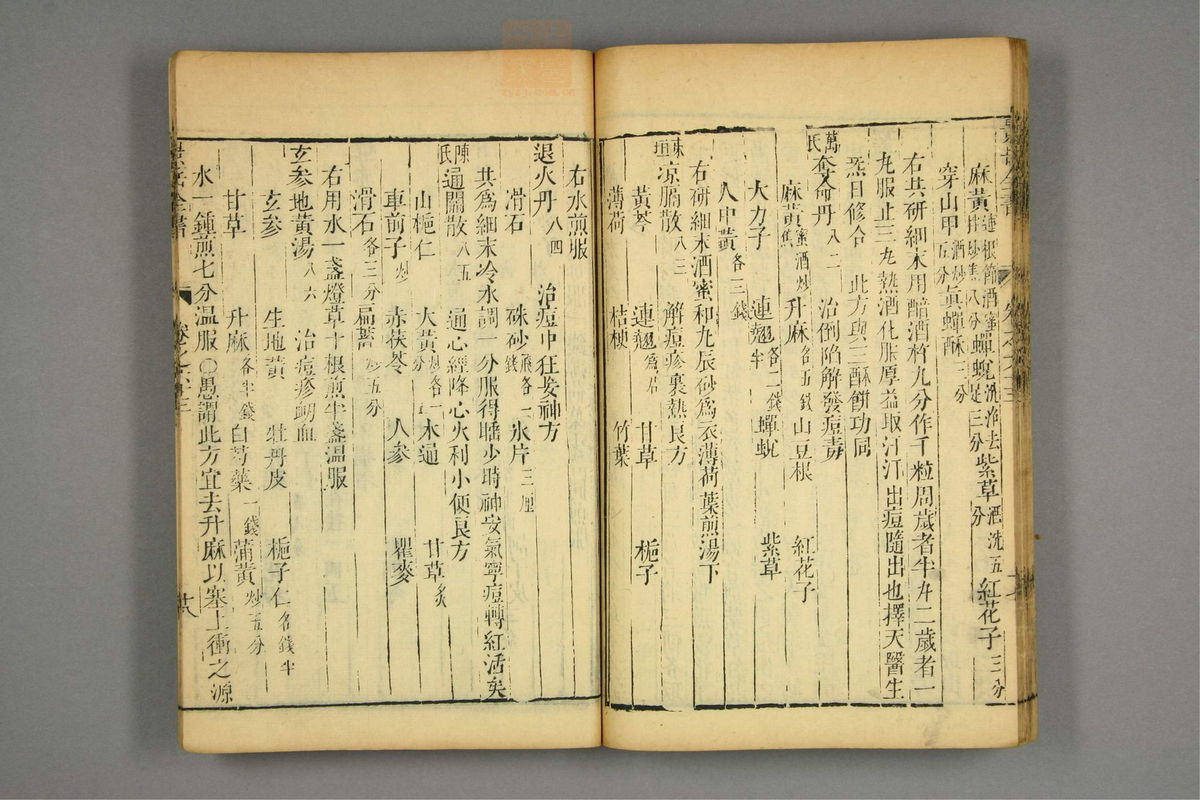 麻黃連根節酒蜜拌炒焦八分蟬蛻洗净去足三分紫草酒洗五分紅花子三分
穿山甲酒炒五分真蟾酥三分
右共研細末用醋酒杵丸分作千粒周歲者半丸二歲者一
丸服止三丸熱酒化服厚蓋取汗汗出痘隨出也擇天醫生
炁日修合 此方與三酥餅功同
萬氏奪命丹八二 治倒陷解發痘毒
麻黃蜜酒炒焦 升麻各五錢 山豆根 紅花子
大力子 連翹各二錢半 蟬蛻 紫草
人中黃各三錢
右研細末酒蜜和丸辰砂為衣薄荷葉煎湯下
東垣凉膈散八三 解痘疹裏熱良方
黃芩 連翹為君 甘草 梔子
薄荷 桔梗 竹葉
右水煎服
退火丹八四 治痘中狂妄神方
滑石 硃砂飛各一錢 氷片三厘
共爲細末冷水調一分服得睡少時神安氣寧痘轉紅活矣
陳氏通關散八五 通心經降心火利小便良方
山梔仁 大黃炒各一分 木通 甘草炙
車前子炒 赤茯苓 人參 瞿麥
滑石各三分 扁蓄炒五分
右用水一盞燈草十根煎半盞温服
玄參地黃湯八六 治痘疹衂血
玄參 生地黃 牡丹皮 梔子仁各錢半
甘草 升麻各半錢 白芍藥一錢 蒲黃炒五分
水一鍾煎七分温服〇愚謂此方宜去升麻以塞上衝之源